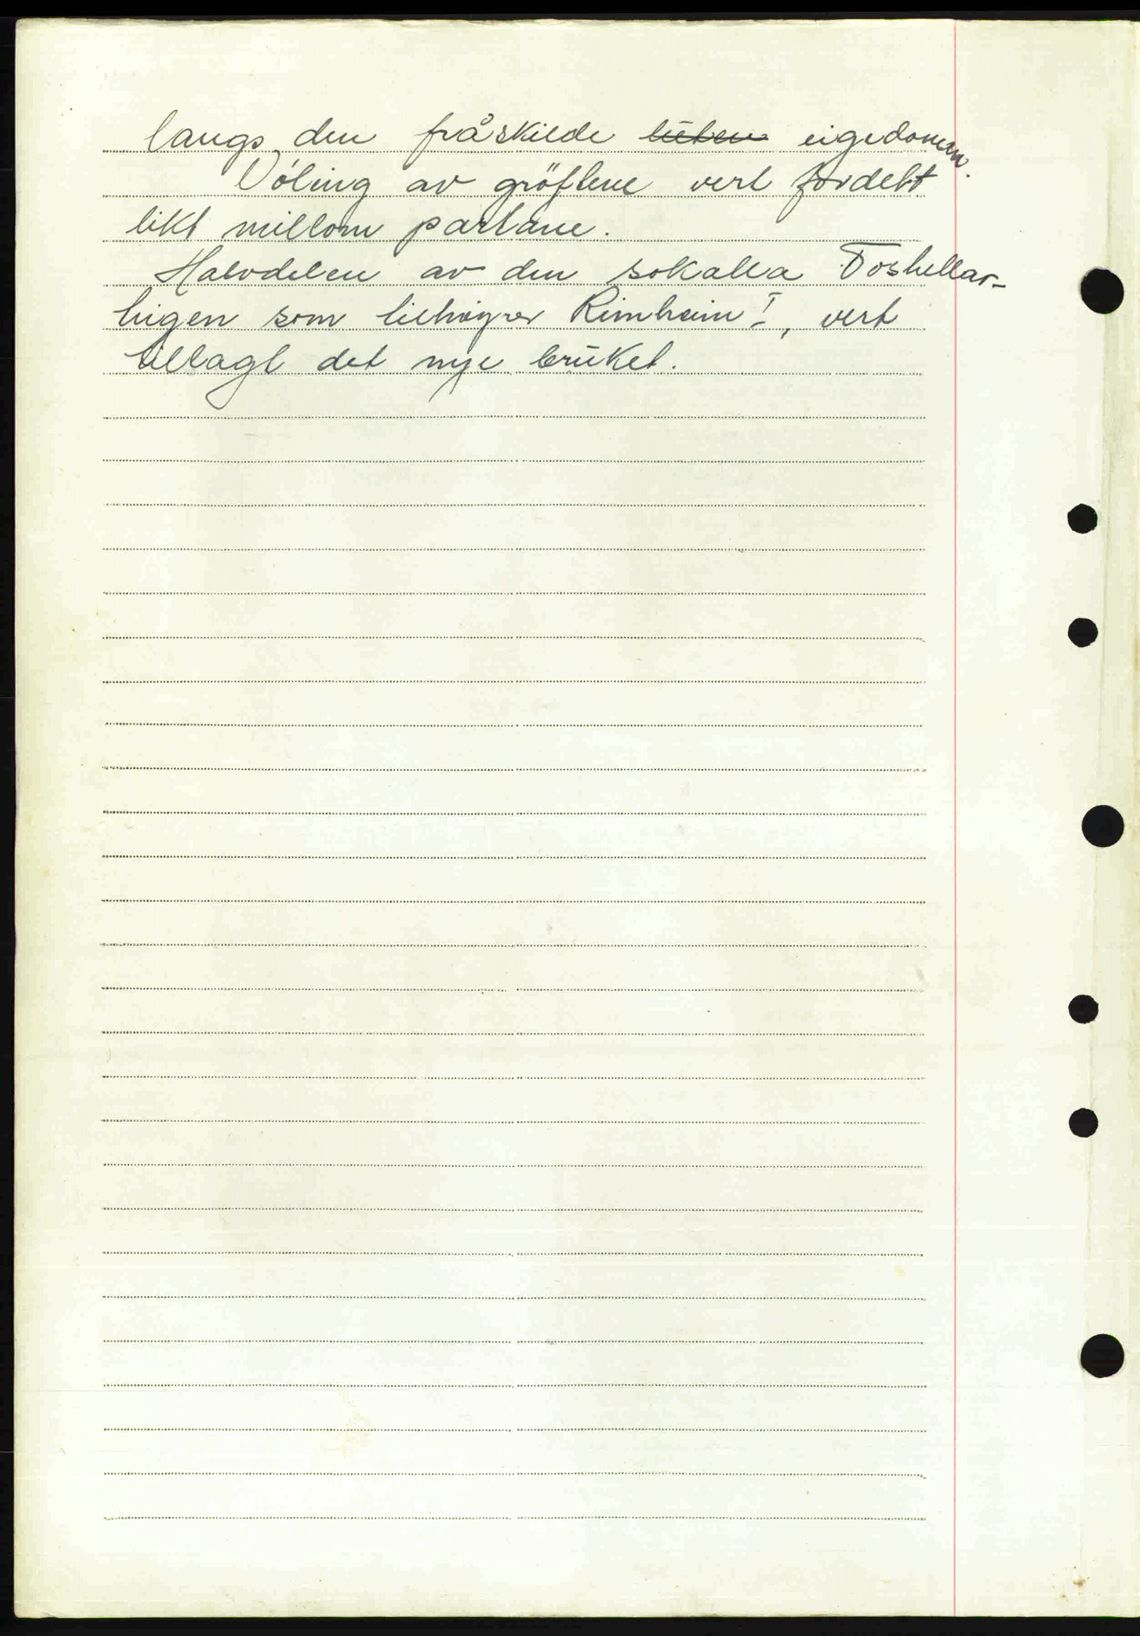 langs den fråskilde ~~luten~~ eigedomen.
Vøling av gröftene vert fordelt
likt millom partane.
Halvdelen av den sokalla Foshellar-
higen som tilhøyrer Rimheim I, vert
tillagt det nye bruket.